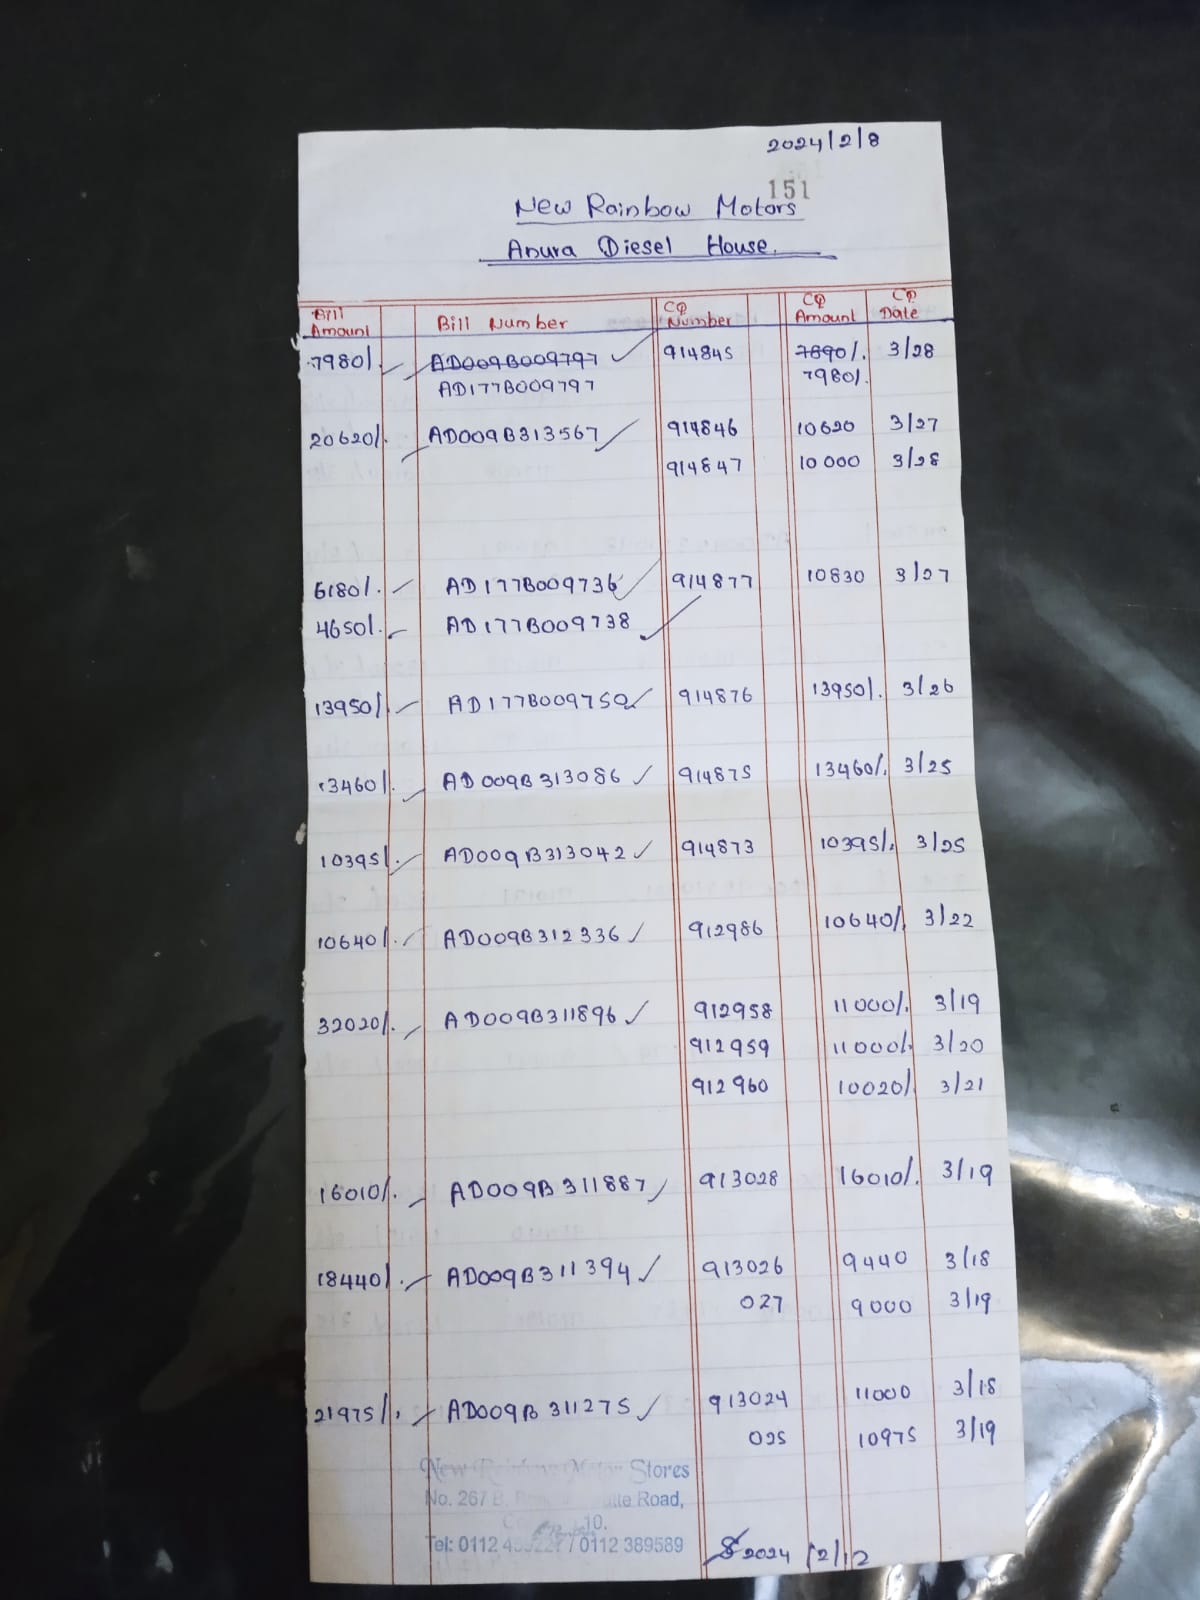 2024/2/8
151
New Rainbow Motors
Anura Diesel House.
Bill Amount Bill Number CQ Number CQ Amount CQ Date
7980/. AD009B009797 914845 7890/. 3/28
AD177B009797 7980/.
20620/. AD009B313567 914846 10620 3/27
914847 10000 3/28
6180/. AD177B009736 914877 10830 3/27
4650/. AD177B009738
13950/. AD177B009750 914876 13950/. 3/26
13460/. AD009B313086 914875 13460/. 3/25
10395/. AD009B313042 914873 10395/. 3/25
10640/. AD009B312336 912986 10640/. 3/22
32020/. AD009B311896 912958 11000/. 3/19
912959 11000/. 3/20
912960 10020/. 3/21
16010/. AD009B311887 913028 16010/. 3/19
18440/. AD009B311394 913026 9440 3/18
027 9000 3/19
21975/. AD009B311275 913024 11000 3/18
025 10975 3/19
New Rainbow Motor Stores
No. 267 B, Road,
10.
Tel: 0112 / 0112 389589
2024/2/12